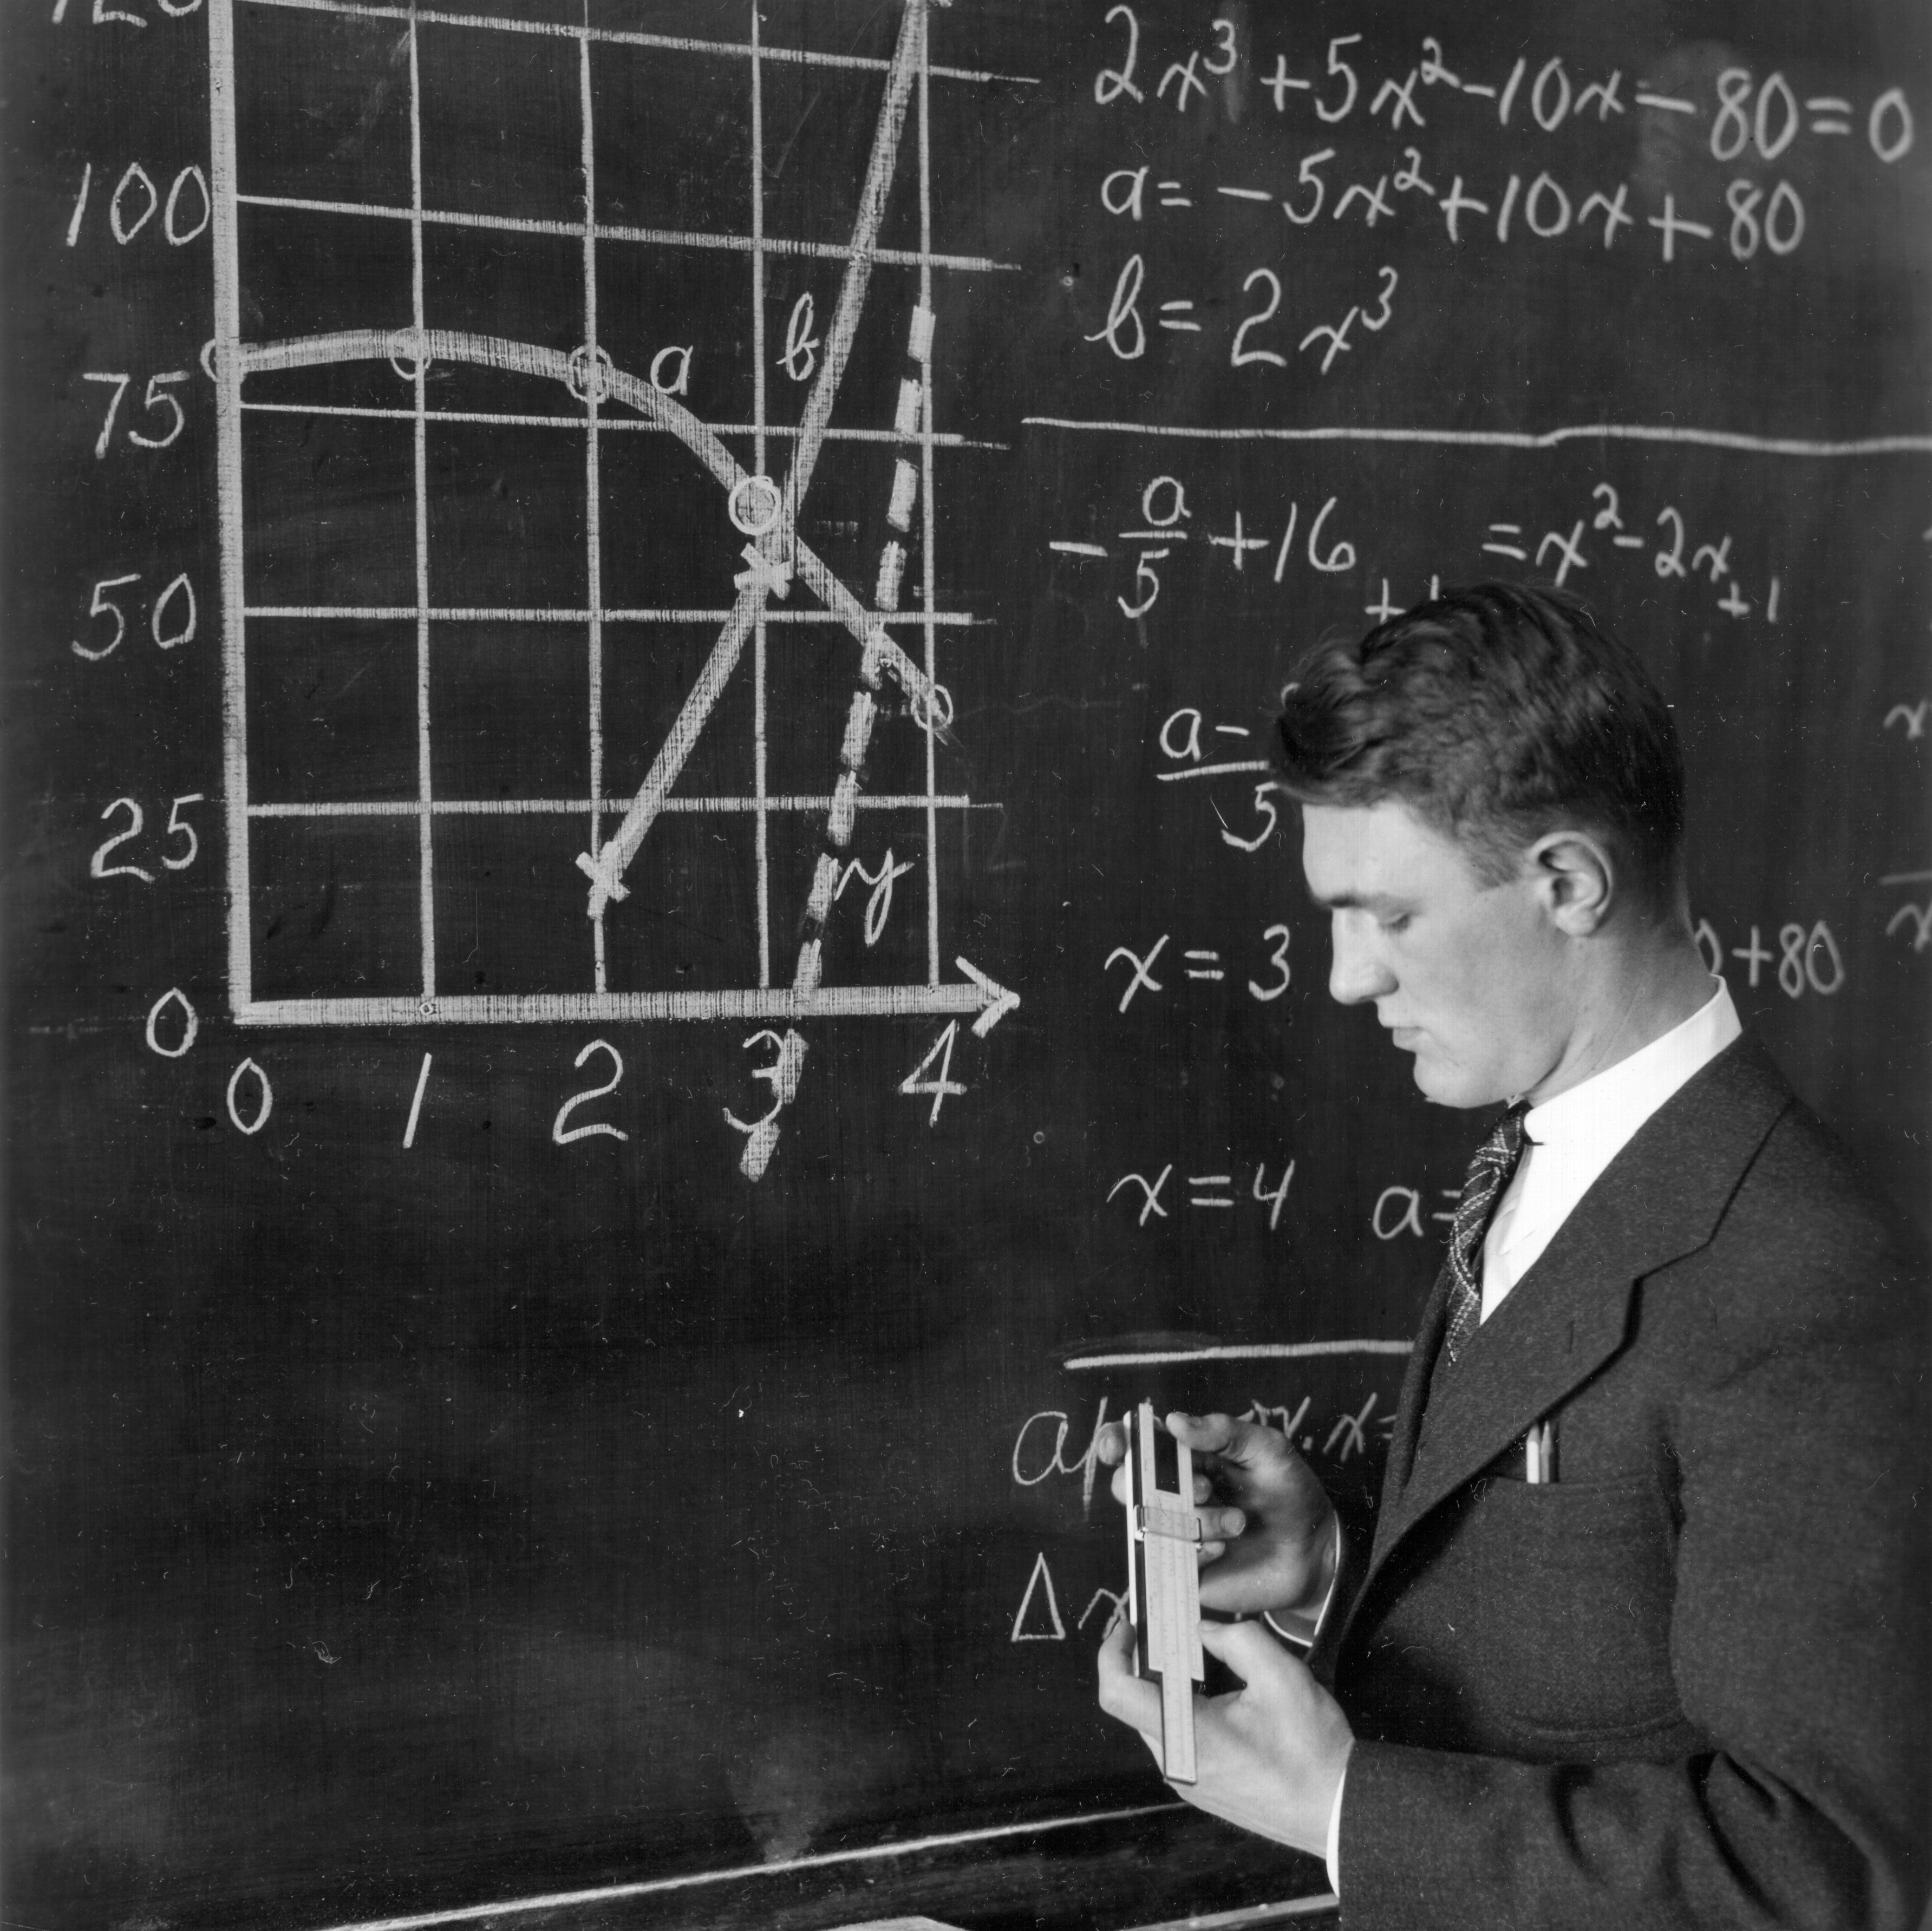 100
75
50
25
0
0 1 2 3 4
a
b
y
2x³+5x²-10x-80=0
a=-5x²+10x+80
b=2x³
-a/5+16 =x²-2x+1
a-
5
x=3 +80
x=4 a=
x=
Δx